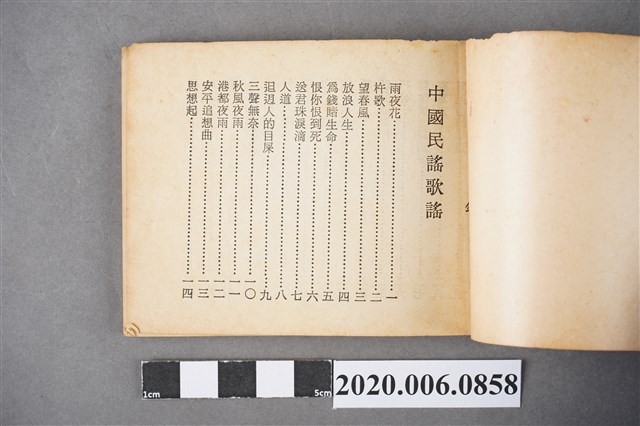 中國民謠歌謠
雨夜花 一
杵歌 二
望春風 三
放浪人生 四
為錢賭生命 五
恨你恨到死 六
送君珠淚滴 七
人道 八
迌迌人的目屎 九
三聲無奈 一〇
秋風夜雨 一一
港都夜雨 一二
安平追想曲 一三
思想起 一四
1cm
5cm
2020.006.0858